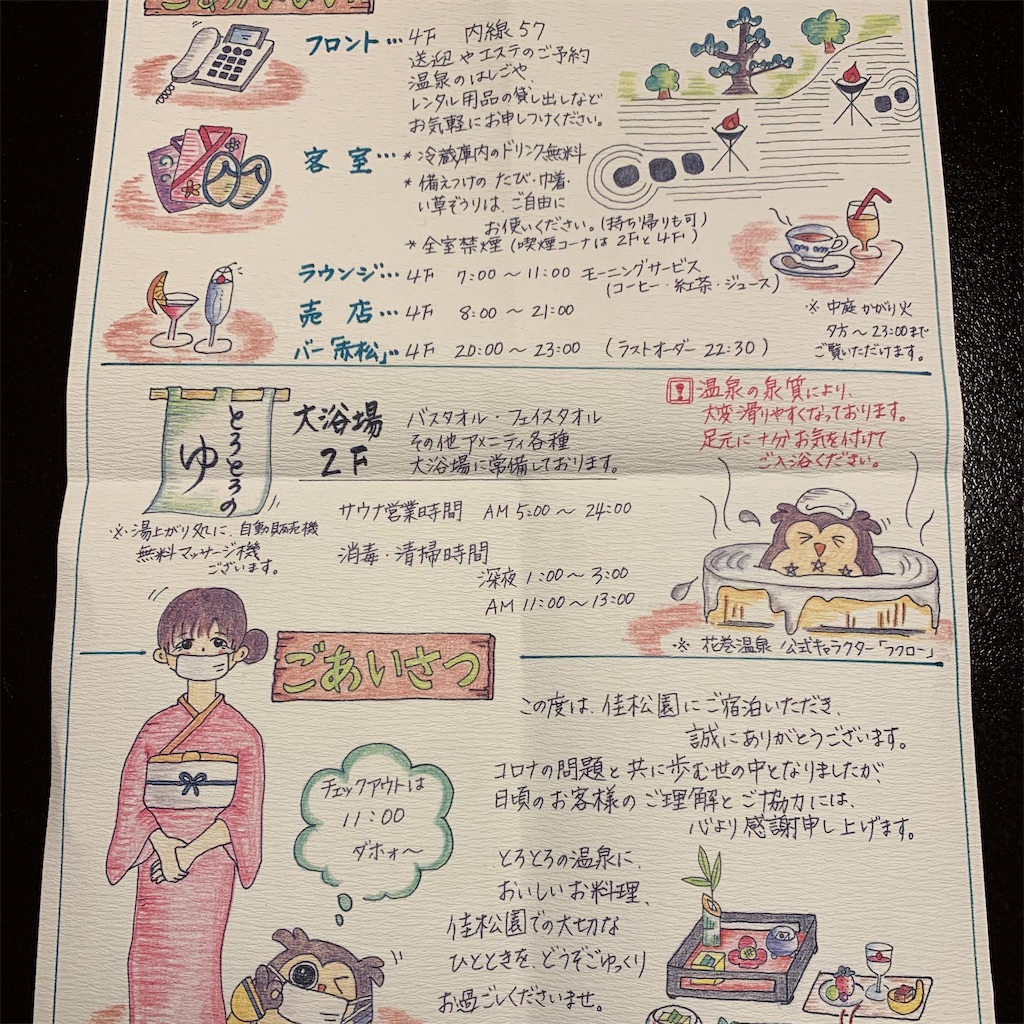 ごあんない
フロント…4F 内線57
送迎やエステのご予約
温泉のはしごや、
レンタル用品の貸し出しなど
お気軽にお申しつけください。
客室…*冷蔵庫内のドリンク無料
*備えつけの たび・巾着・
い草ぞうりは、ご自由に
お使いください。(持ち帰りも可)
*全室禁煙(喫煙コーナは2Fと4F)
ラウンジ…4F 7:00~11:00 モーニングサービス
(コーヒー・紅茶・ジュース)
売店…4F 8:00~21:00
バー「赤松」…4F 20:00~23:00 (ラストオーダー 22:30)
※ 中庭かがり火
夕方~23:00まで
ご覧いただけます。
とろとろの
ゆ
※湯上がり処に、自動販売機
無料マッサージ機
ございます。
大浴場
2F
バスタオル・フェイスタオル
その他アメニティ各種
大浴場に常備しております。
サウナ営業時間 AM5:00~24:00
消毒・清掃時間
深夜1:00~3:00
AM11:00~13:00
!温泉の泉質により、
大変滑りやすくなっております。
足元に十分お気を付けて
ご入浴ください。
※ 花巻温泉 公式キャラクター「フクロー」
ごあいさつ
この度は、佳松園にご宿泊いただき、
誠にありがとうございます。
コロナの問題と共に歩む世の中となりましたが、
日頃のお客様のご理解とご協力には、
心より感謝申し上げます。
とろとろの温泉に、
おいしいお料理、
佳松園での大切な
ひとときを、どうぞごゆっくり
お過ごしくださいませ。
チェックアウトは
11:00
ダホォ~